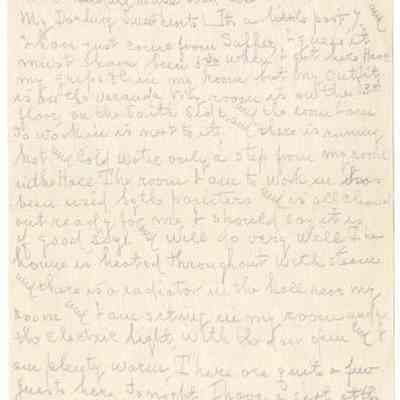 My Darling Sweetheart. Its a little past 7 and
I have just come from Supper I guess it
must have been 6 when I got here. Have
my grips in my room but my outfit
is on the veranda. My room is on the 3rd
floor on the South Side and the room I am
to work in is next to it, and there is running
hot and cold water only a step from my room
in the Hall. The room I am to work in has
been used by the painters and is all cleaned
out ready for me. I should say it is
a good Light and will do very well. The
house is heated throughout with steam
and there is a radiator in the hall near my
room and I am sitting in my room under
the electric light with the door open and I
am plenty warm. There are quite a few
guests here tonight. I have a seat at the